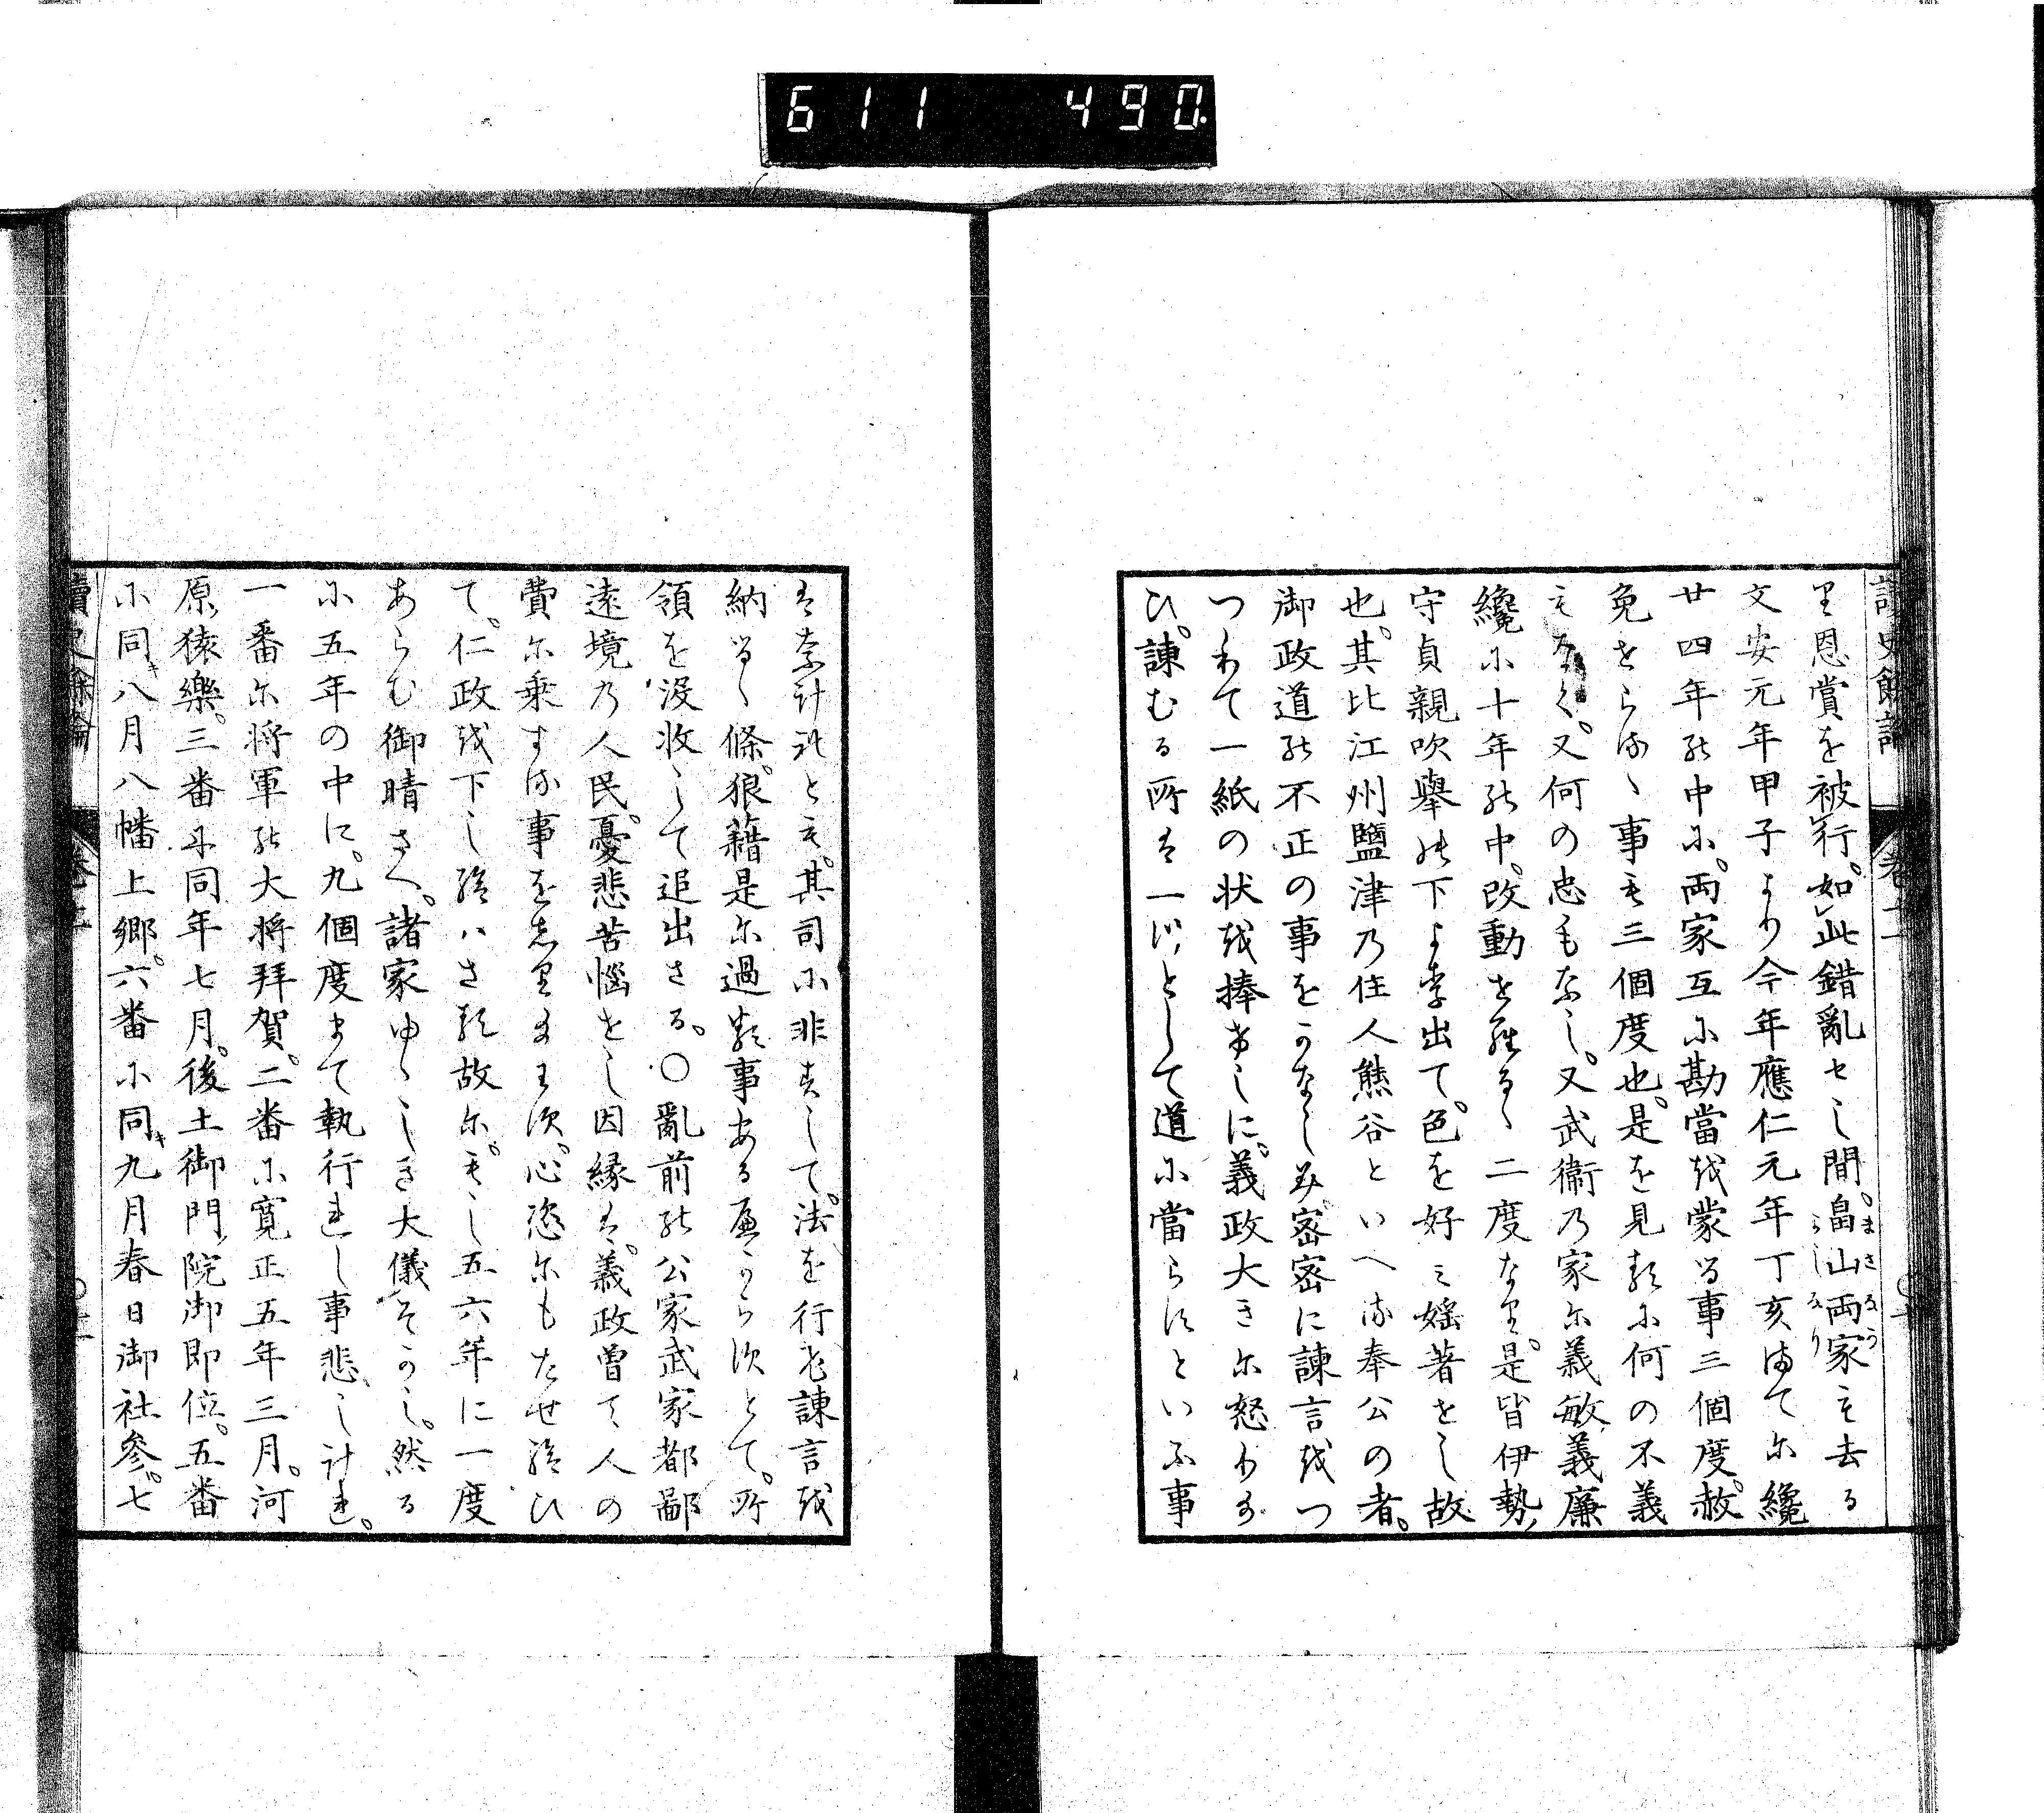 611 490.
讀史餘論 卷十一
里恩賞を被行。如此錯亂せし間。畠山両家も去る
まさなか
らしなり
文安元年甲子より今年應仁元年丁亥まてに纔
廿四年の中に。両家互に勘當を蒙る事三個度。赦
免せらるゝ事も三個度也。是を見るに何の不義
もなく。又何の忠もなし。又武衞乃家に義敏義廉
纔に十年の中。改動せらるゝ二度なり。是皆伊勢
守貞親吹擧の下より出て。色を好み婬著せし故
也。其比江州鹽津乃住人熊谷といへる奉公の者。
御政道の不正の事をかなしみ密密に諫言をつ
つりて一紙の状を捧けしに。義政大きに怒りた
ひ。諫むる所は一ツとして道に當らすといふ事
はなけれとも。其司に非すして。法を行ひ諫言を
納るゝ條。狼藉是に過る事あるへからすとて。所
領を沒收して追出さる。〇亂前の公家武家都鄙
遠境乃人民。憂悲苦惱せし因縁は。義政曾て人の
費に乗する事をしり玉はす。心恣にもたせ給ひ
て。仁政を下し給ハさる故に。もし五六年に一度
あらむ御晴さへ。諸家ゆゝしき大儀そかし。然る
に五年の中に。九個度まて執行れし事悲しけれ。
一番に将軍の大将拜賀。二番に寛正五年三月。河
原猿樂。三番に同年七月。後土御門院御即位。五番
に同キ八月八幡上郷。六番に同キ九月春日御社參。七
讀史餘論 卷十一